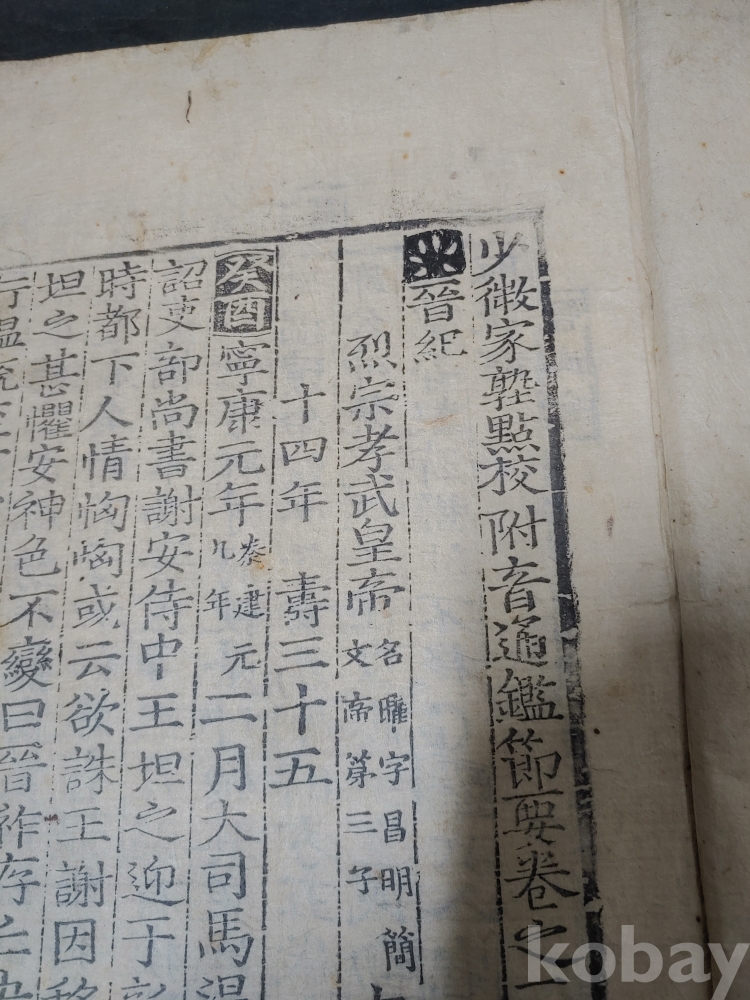 少微家塾點校附音通鑑節要卷之
晉紀
烈宗孝武皇帝名曜字昌明簡文帝第三子
十四年壽三十五
癸酉寧康元年秦建元九年二月大司馬溫
詔吏部尚書謝安侍中王坦之迎于
時都下人情恟恟或云欲誅王謝因移
坦之甚懼安神色不變曰晉祚存亡
行溫
kobay